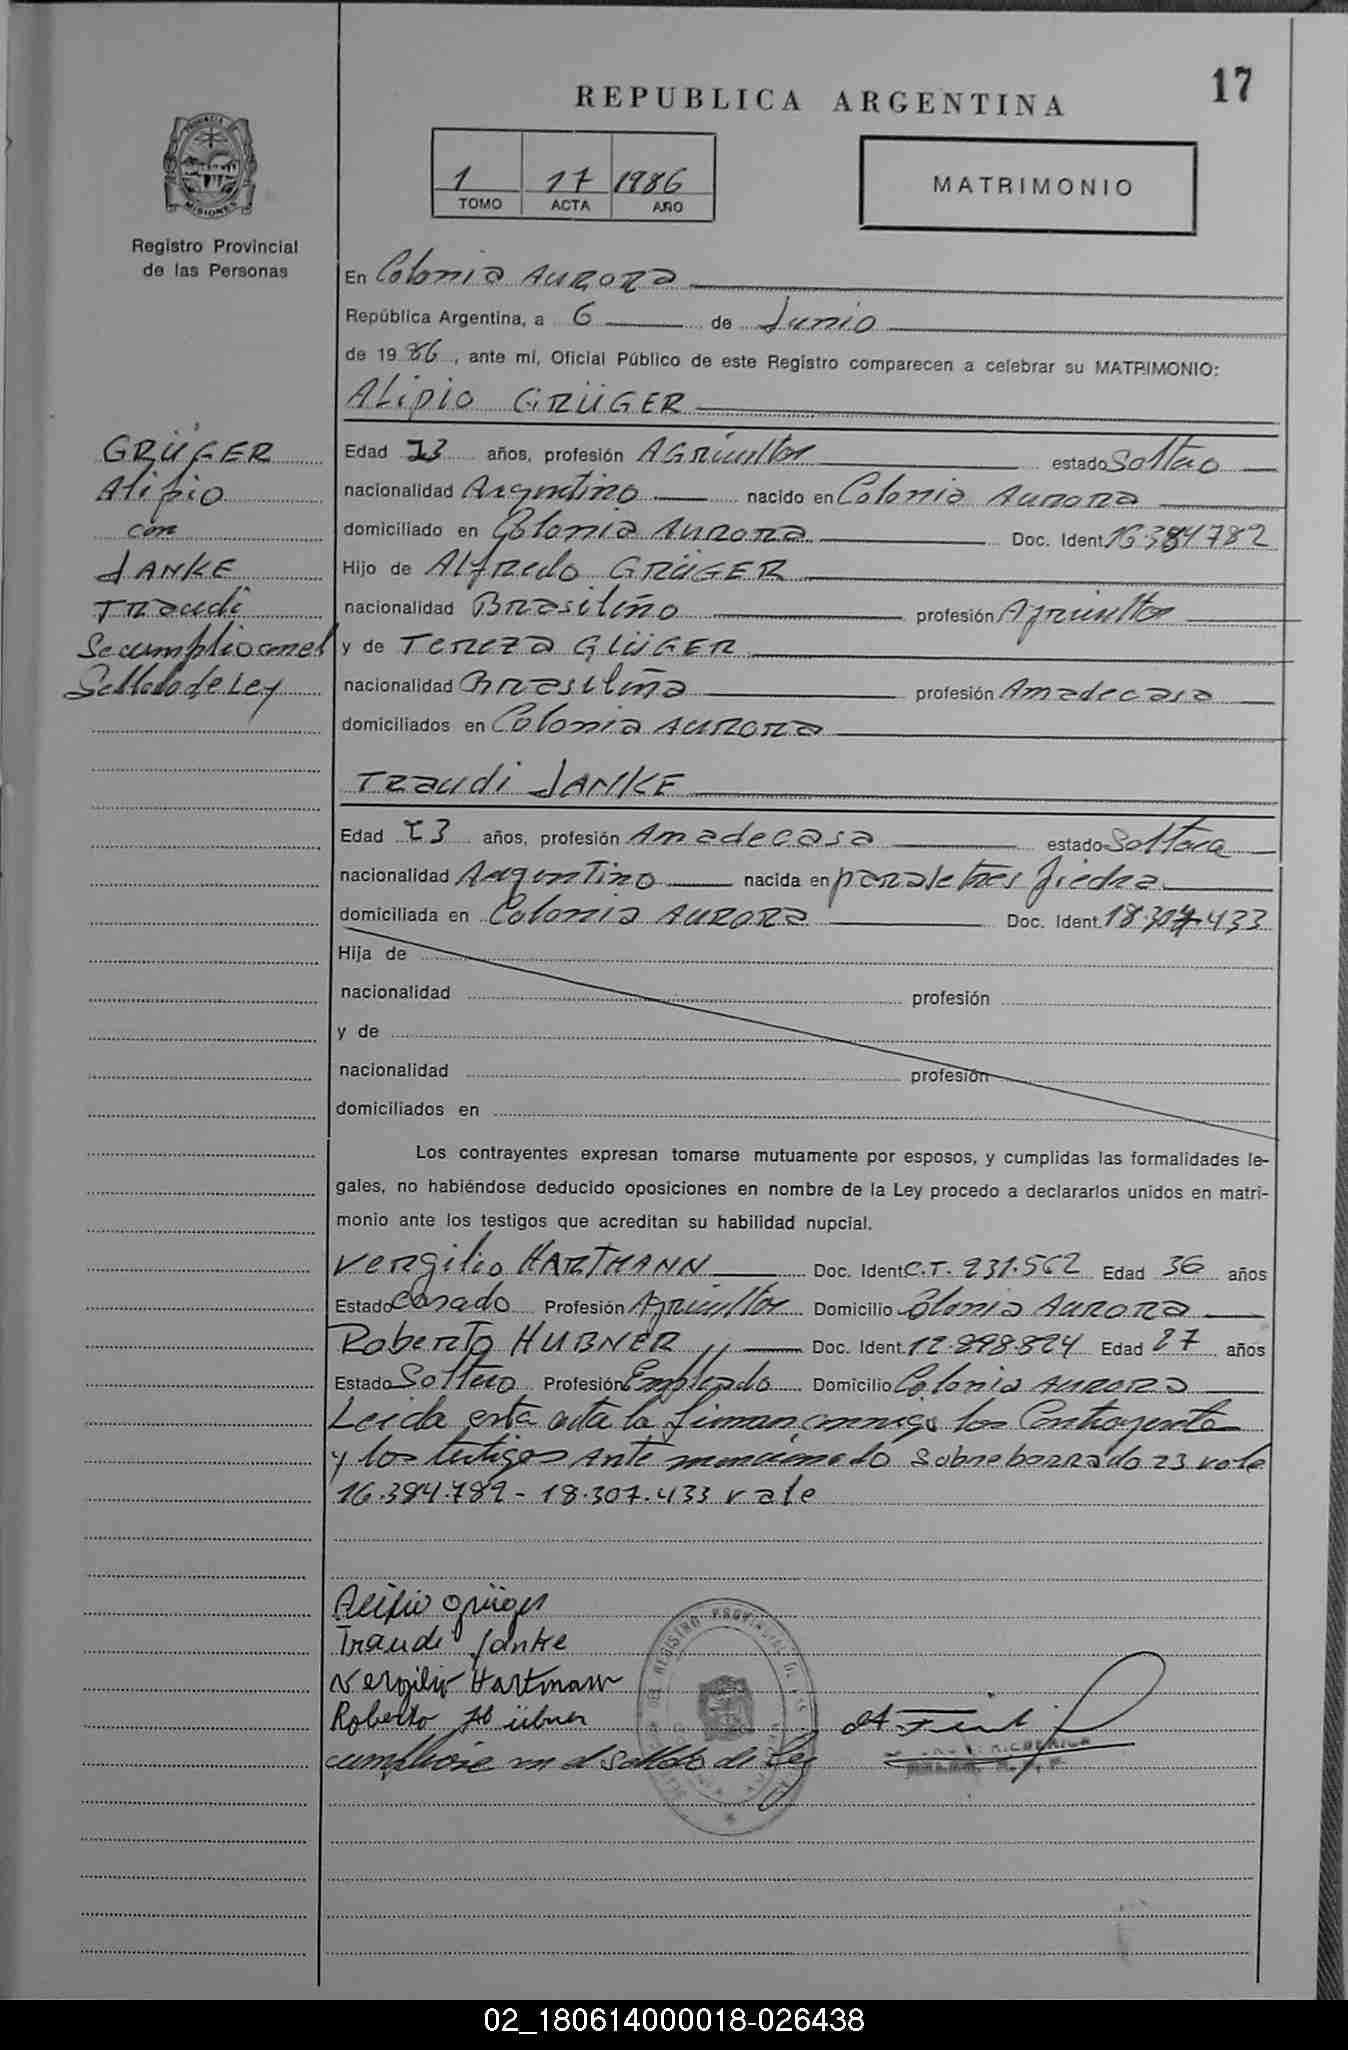 17
REPUBLICA ARGENTINA
1 17 1986
TOMO ACTA AÑO
MATRIMONIO
PROVINCIA DE
MISIONES
Registro Provincial
de las Personas
En Colonia AURORA
República Argentina, a 6 de Junio
de 1986, ante mí, Oficial Público de este Registro comparecen a celebrar su MATRIMONIO:
ALipio GRÜGER
GRÜGER
Alipio
con
JANKE
Traudi
Se cumplio con el
Sellado de Ley
Edad 23 años, profesión AGRicultor estado Soltero
nacionalidad Argentino nacido en Colonia AURORA
domiciliado en Colonia AURORA Doc. Ident. 16.384782
Hijo de ALfredo GRÜGER
nacionalidad Brasileño profesión Agricultor
y de TEREZA GLÜGER
nacionalidad Brasileña profesión Amadecasa
domiciliados en Colonia AURORA
TRaudi JANKE
Edad 23 años, profesión Amadecasa estado Soltera
nacionalidad Argentino nacida en Tres Piedra
domiciliada en Colonia AURORA Doc. Ident. 18.307.433
Hija de
nacionalidad profesión
y de
nacionalidad profesión
domiciliados en
Los contrayentes expresan tomarse mutuamente por esposos, y cumplidas las formalidades le-
gales, no habiéndose deducido oposiciones en nombre de la Ley procedo a declararlos unidos en matri-
monio ante los testigos que acreditan su habilidad nupcial.
Vergilio HARTMANN Doc. Ident. C.T. 231.562 Edad 36 años
Estado Casado Profesión Agricultor Domicilio Colonia AURORA
Roberto HUBNER Doc. Ident. 12.898.824 Edad 27 años
Estado Soltero Profesión Empleado Domicilio Colonia AURORA
Leida esta acta la firman conmigo los Contrayente
y los testigos ante mencionado Sobre borrado 23 vale
16.384.782 - 18.307.433 vale
Alipio Grüger
Traudi Janke
Vergilio Hartmann
Roberto Hübner
cumpliose en el sellado de Ley
02_180614000018-026438